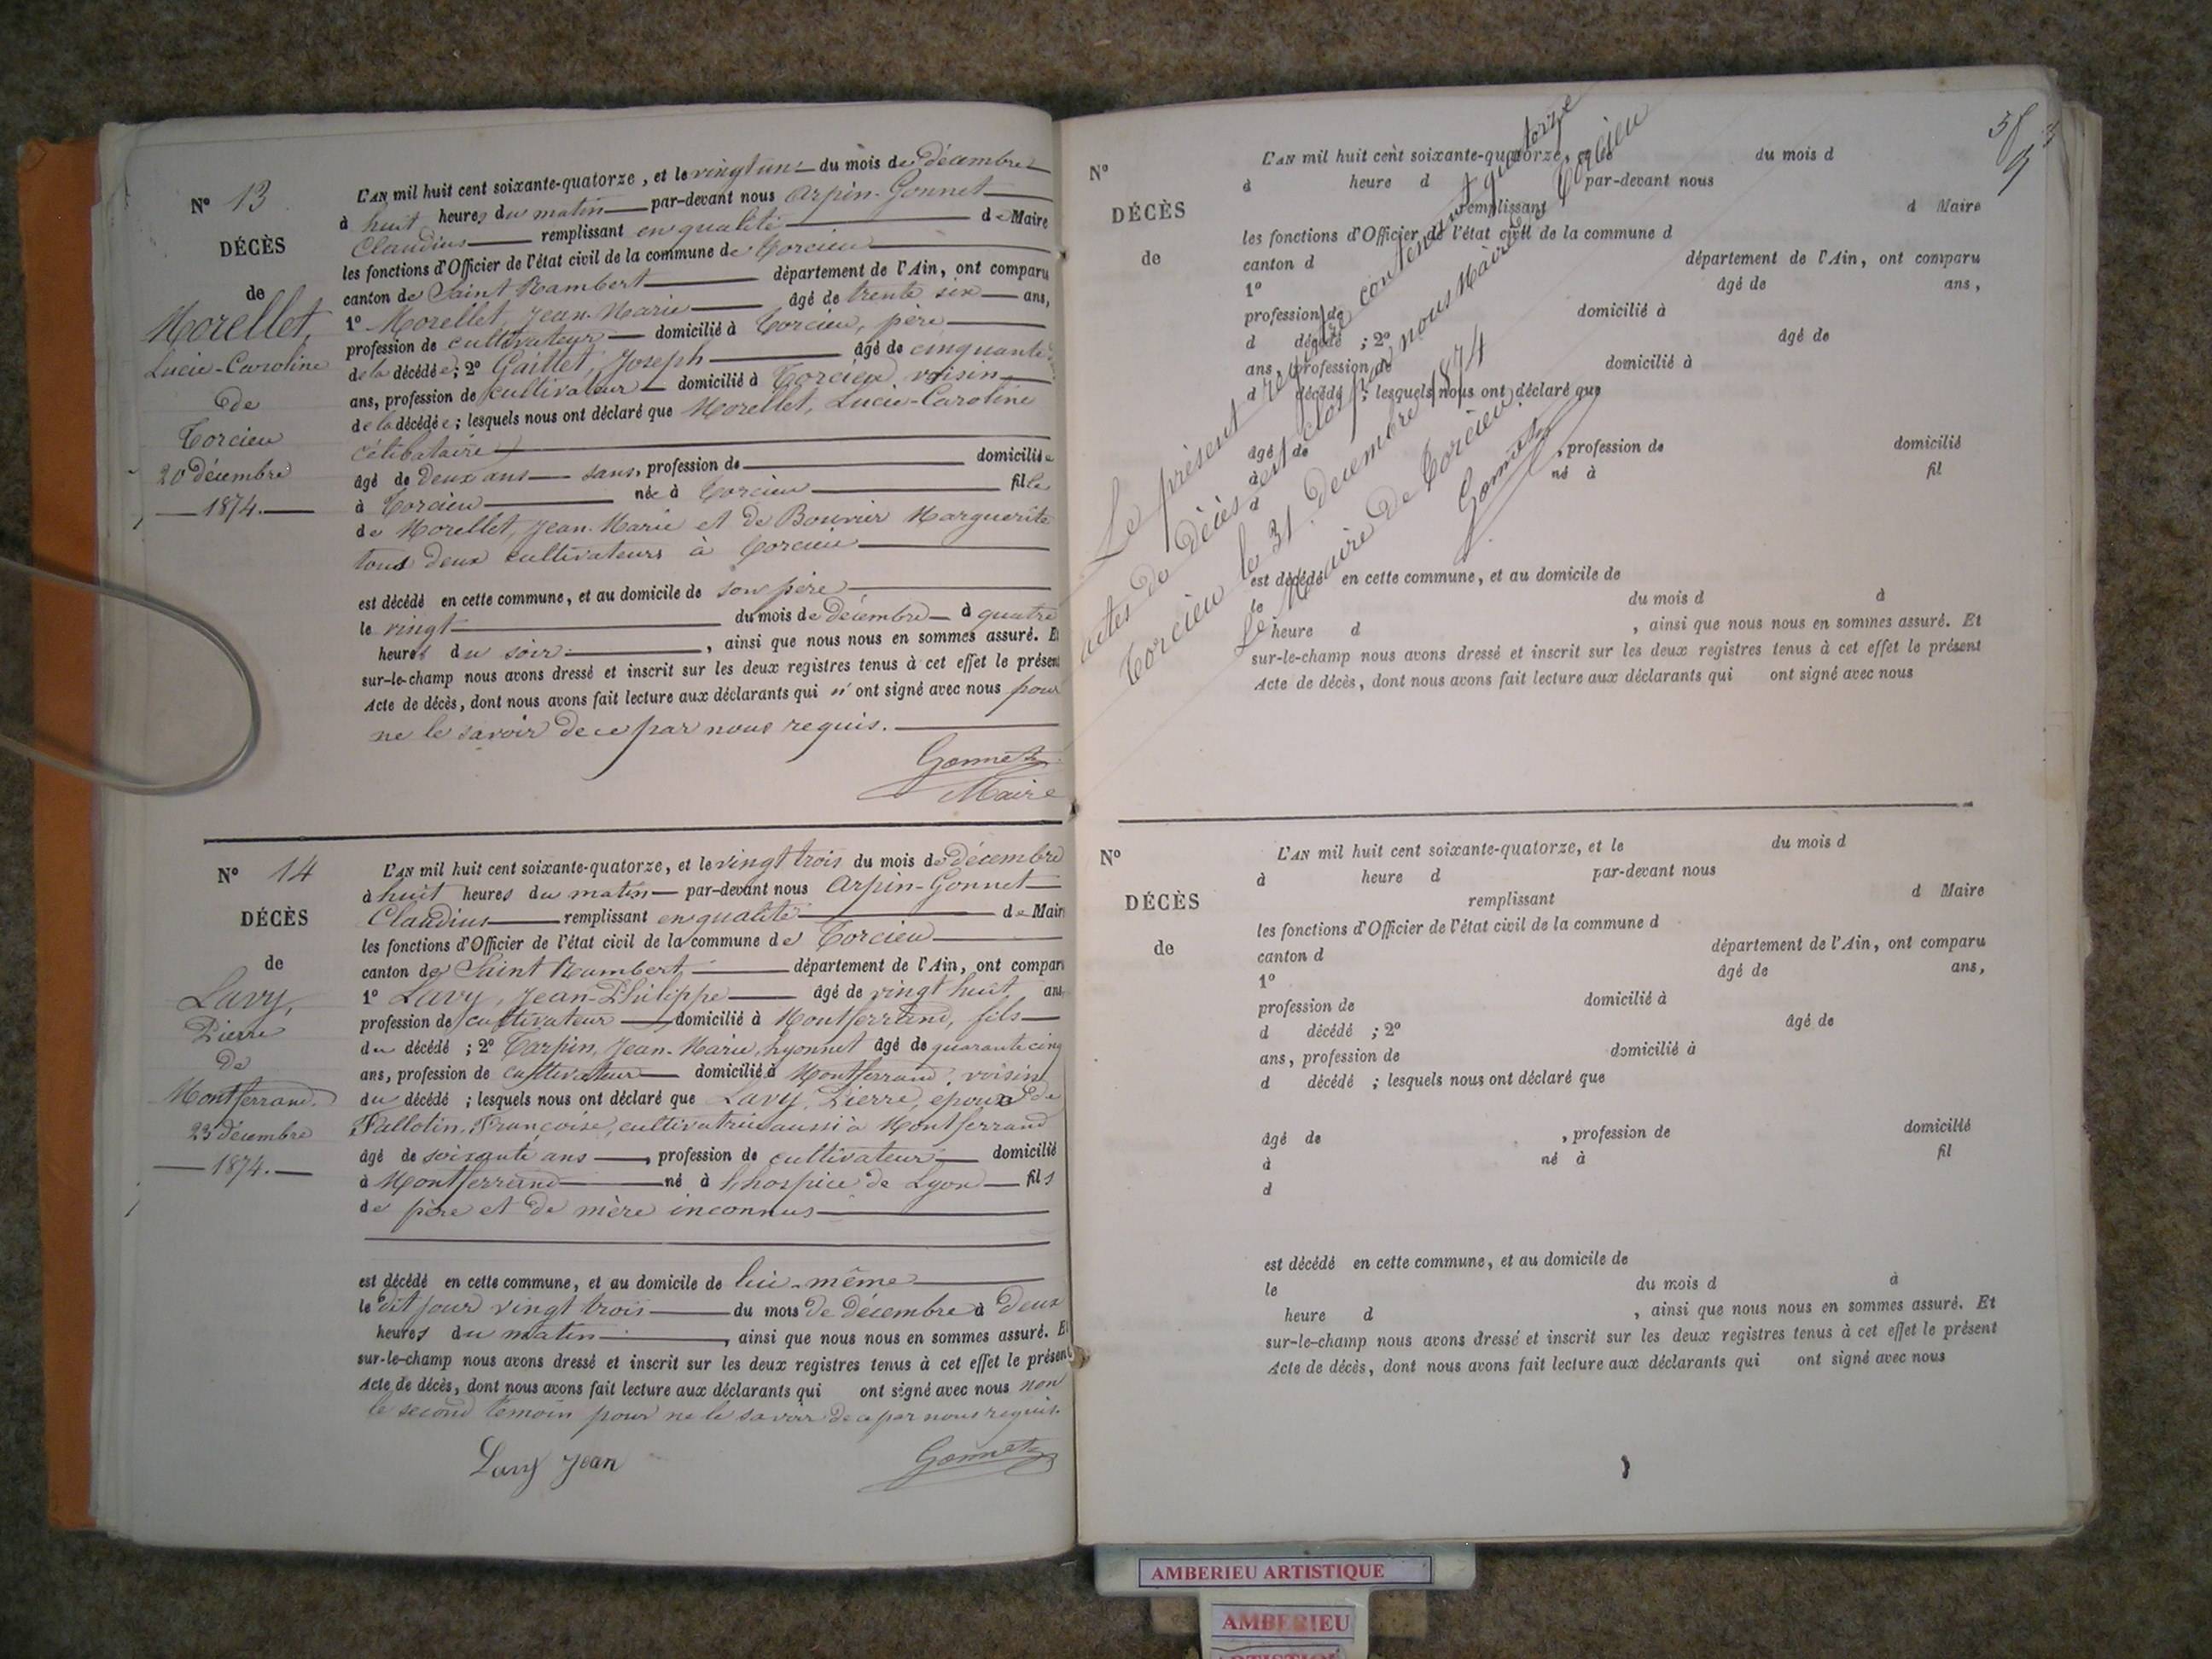 N° 13
DÉCÈS
de
Morellet,
Lucie-Caroline
de
Torcieu
20 décembre
1874.
L'AN mil huit cent soixante-quatorze, et le vingt un du mois de décembre
à huit heures du matin par-devant nous Arpin-Gonnet
Claudius remplissant en qualité de Maire
les fonctions d'Officier de l'état civil de la commune de Torcieu
canton de Saint Rambert département de l'Ain, ont comparu
1° Morellet, Jean-Marie âgé de trente six ans,
profession de cultivateur domicilié à Torcieu, père
de la décédée; 2° Gaillet, Joseph âgé de cinquante
ans, profession de cultivateur domicilié à Torcieu voisin
de la décédée; lesquels nous ont déclaré que Morellet, Lucie-Caroline
célibataire
âgé de deux ans sans, profession de domiciliée
à Torcieu née à Torcieu fille
de Morellet, Jean-Marie et de Bouvier Marguerite
tous deux cultivateurs à Torcieu
est décédé en cette commune, et au domicile de son père
le vingt du mois de décembre à quatre
heures du soir, ainsi que nous nous en sommes assuré. Et
sur-le-champ nous avons dressé et inscrit sur les deux registres tenus à cet effet le présent
Acte de décès, dont nous avons fait lecture aux déclarants qui n'ont signé avec nous pour
ne le savoir de ce par nous requis.
Gonnet
Maire
N° 14
DÉCÈS
de
Lavy,
Pierre
de
Montferrand.
23 décembre
1874.
L'AN mil huit cent soixante-quatorze, et le vingt trois du mois de décembre
à huit heures du matin par-devant nous Arpin-Gonnet
Claudius remplissant en qualité de Maire
les fonctions d'Officier de l'état civil de la commune de Torcieu
canton de Saint Rambert département de l'Ain, ont comparu
1° Lavy, Jean-Philippe âgé de vingt huit ans
profession de cultivateur domicilié à Montferrand, fils
du décédé; 2° Tarpin, Jean-Marie, Lyonnet âgé de quarante cinq
ans, profession de cultivateur domicilié à Montferrand, voisin
du décédé; lesquels nous ont déclaré que Lavy, Pierre, époux de
Pallotin, Françoise, cultivatrice aussi à Montferrand
âgé de soixante ans, profession de cultivateur domicilié
à Montferrand né à l'hospice de Lyon fils
de père et de mère inconnus
est décédé en cette commune, et au domicile de lui-même
le dit jour vingt trois du mois de décembre à deux
heures du matin, ainsi que nous nous en sommes assuré. Et
sur-le-champ nous avons dressé et inscrit sur les deux registres tenus à cet effet le présent
Acte de décès, dont nous avons fait lecture aux déclarants qui ont signé avec nous non
le second témoin pour ne le savoir de ce par nous requis.
Lavy Jean
Gonnet
N°
DÉCÈS
de
L'AN mil huit cent soixante-quatorze, et le du mois d
à heure d par-devant nous
remplissant d Maire
les fonctions d'Officier de l'état civil de la commune d
canton d département de l'Ain, ont comparu
1° âgé de ans,
profession de domicilié à
d décédé ; 2° âgé de
ans, profession de domicilié à
d décédé ; lesquels nous ont déclaré que
âgé de , profession de domicilié
à né à fil
d
est décédé en cette commune, et au domicile de
le du mois d à
heure d , ainsi que nous nous en sommes assuré. Et
sur-le-champ nous avons dressé et inscrit sur les deux registres tenus à cet effet le présent
Acte de décès, dont nous avons fait lecture aux déclarants qui ont signé avec nous
Le présent registre contenant quatorze
actes de décès est clos par nous Maire de Torcieu
Torcieu le 31 décembre 1874
Le Maire de Torcieu
Gonnet
N°
DÉCÈS
de
L'AN mil huit cent soixante-quatorze, et le du mois d
à heure d par-devant nous
remplissant d Maire
les fonctions d'Officier de l'état civil de la commune d
canton d département de l'Ain, ont comparu
1° âgé de ans,
profession de domicilié à
d décédé ; 2° âgé de
ans, profession de domicilié à
d décédé ; lesquels nous ont déclaré que
âgé de , profession de domicilié
à né à fil
d
est décédé en cette commune, et au domicile de
le du mois d à
heure d , ainsi que nous nous en sommes assuré. Et
sur-le-champ nous avons dressé et inscrit sur les deux registres tenus à cet effet le présent
Acte de décès, dont nous avons fait lecture aux déclarants qui ont signé avec nous
AMBERIEU ARTISTIQUE
AMBERIEU
ARTISTIQUE